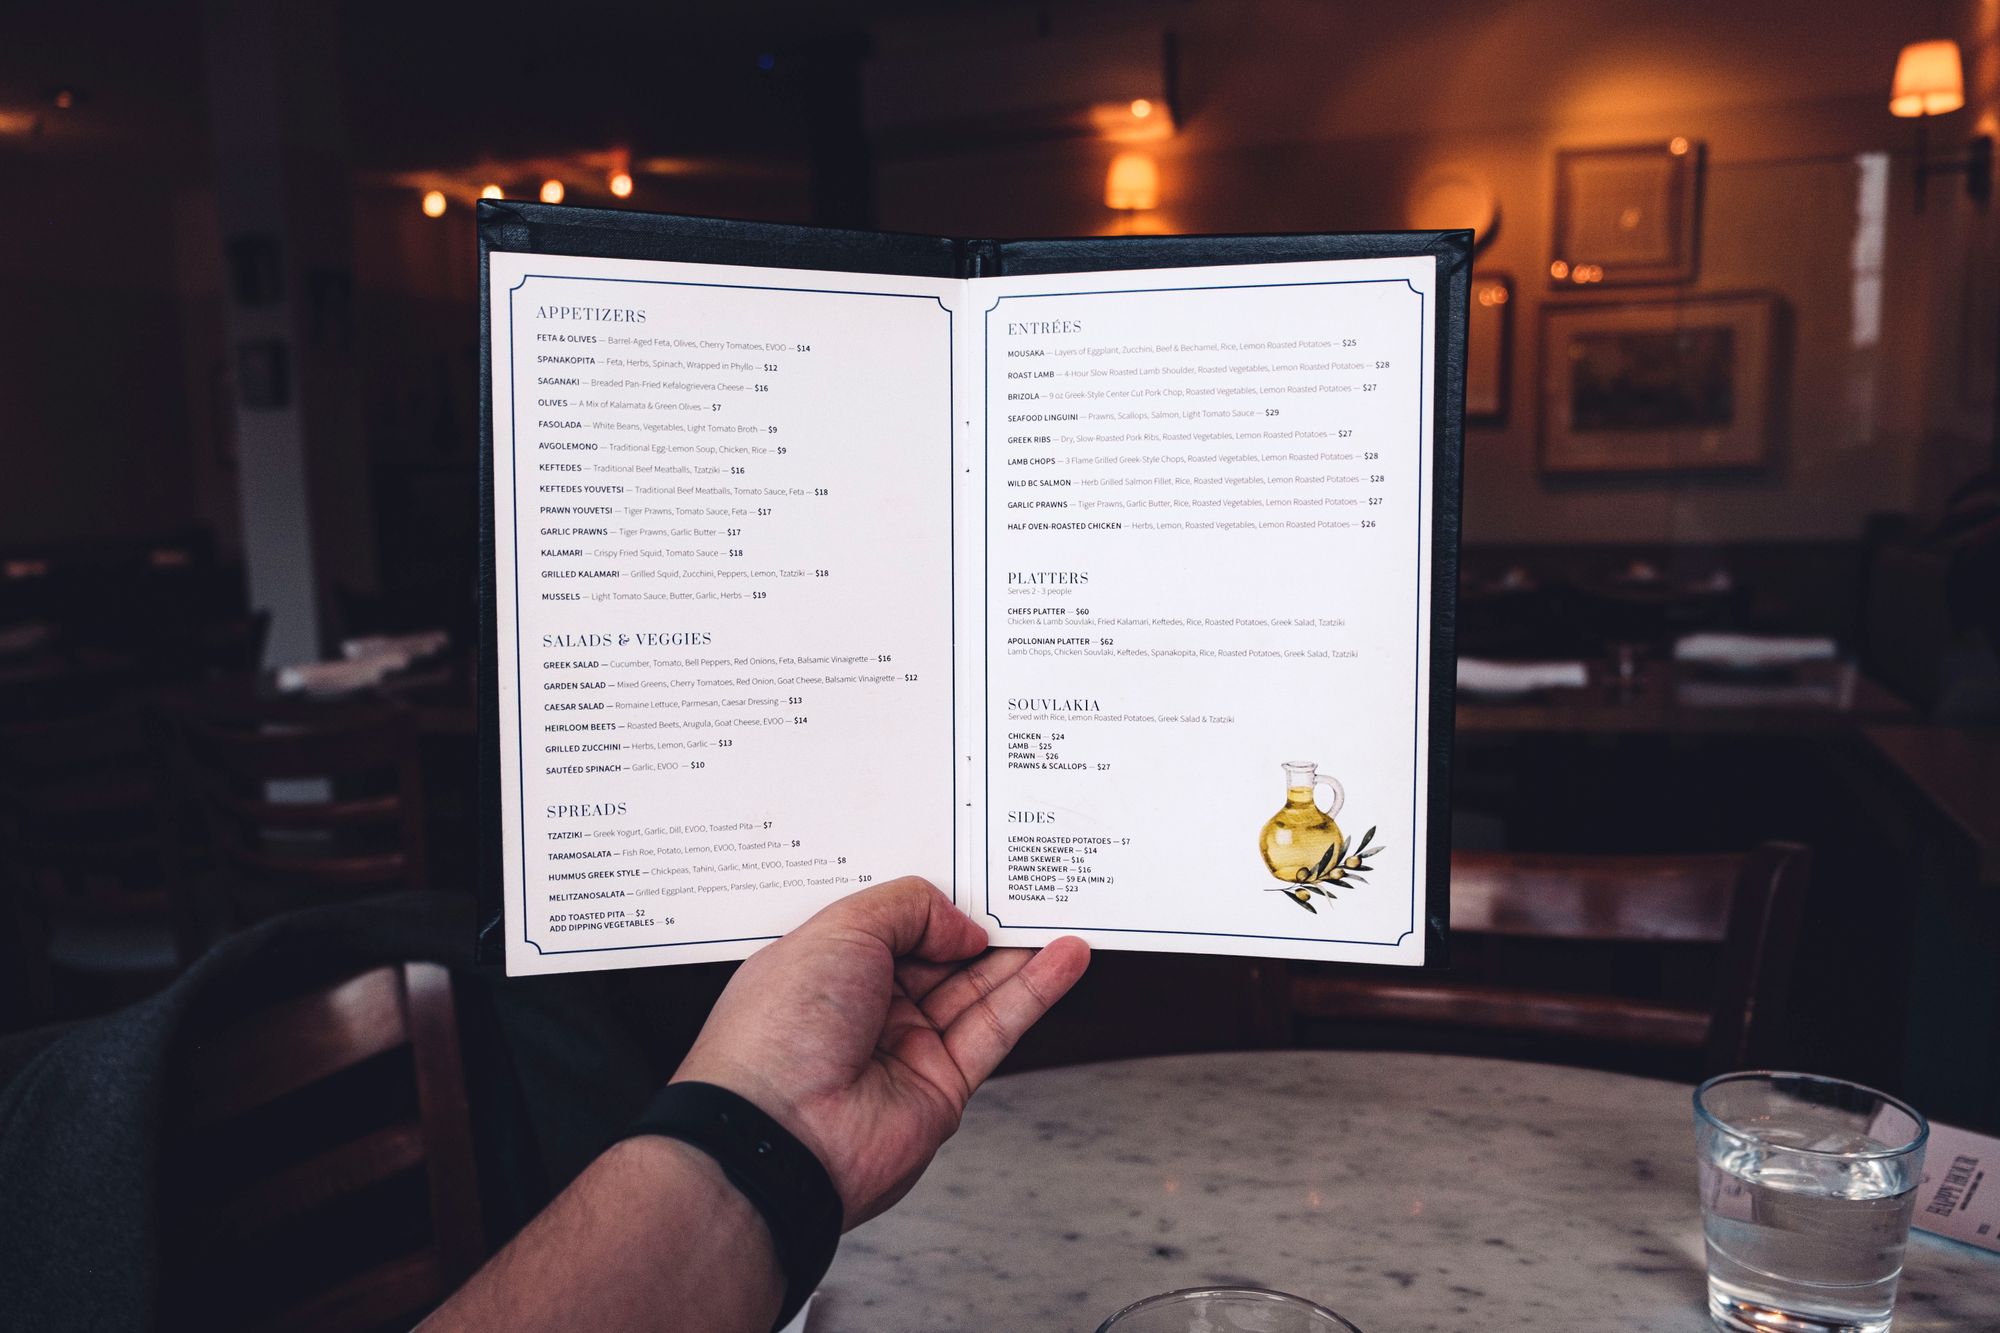 APPETIZERS
FETA & OLIVES — Barrel-Aged Feta, Olives, Cherry Tomatoes, EVOO — $14
SPANAKOPITA — Feta, Herbs, Spinach, Wrapped in Phyllo — $12
SAGANAKI — Breaded Pan-Fried Kefalogrievera Cheese — $16
OLIVES — A Mix of Kalamata & Green Olives — $7
FASOLADA — White Beans, Vegetables, Light Tomato Broth — $9
AVGOLEMONO — Traditional Egg-Lemon Soup, Chicken, Rice — $9
KEFTEDES — Traditional Beef Meatballs, Tzatziki — $16
KEFTEDES YOUVETSI — Traditional Beef Meatballs, Tomato Sauce, Feta — $18
PRAWN YOUVETSI — Tiger Prawns, Tomato Sauce, Feta — $17
GARLIC PRAWNS — Tiger Prawns, Garlic Butter — $17
KALAMARI — Crispy Fried Squid, Tomato Sauce — $18
GRILLED KALAMARI — Grilled Squid, Zucchini, Peppers, Lemon, Tzatziki — $18
MUSSELS — Light Tomato Sauce, Butter, Garlic, Herbs — $19
SALADS & VEGGIES
GREEK SALAD — Cucumber, Tomato, Bell Peppers, Red Onions, Feta, Balsamic Vinaigrette — $16
GARDEN SALAD — Mixed Greens, Cherry Tomatoes, Red Onion, Goat Cheese, Balsamic Vinaigrette — $12
CAESAR SALAD — Romaine Lettuce, Parmesan, Caesar Dressing — $13
HEIRLOOM BEETS — Roasted Beets, Arugula, Goat Cheese, EVOO — $14
GRILLED ZUCCHINI — Herbs, Lemon, Garlic — $13
SAUTÉED SPINACH — Garlic, EVOO — $10
SPREADS
TZATZIKI — Greek Yogurt, Garlic, Dill, EVOO, Toasted Pita — $7
TARAMOSALATA — Fish Roe, Potato, Lemon, EVOO, Toasted Pita — $8
HUMMUS GREEK STYLE — Chickpeas, Tahini, Garlic, Mint, EVOO, Toasted Pita — $8
MELITZANOSALATA — Grilled Eggplant, Peppers, Parsley, Garlic, EVOO, Toasted Pita — $10
ADD TOASTED PITA — $2
ADD DIPPING VEGETABLES — $6
ENTRÉES
MOUSAKA — Layers of Eggplant, Zucchini, Beef & Bechamel, Rice, Lemon Roasted Potatoes — $25
ROAST LAMB — 4-Hour Slow Roasted Lamb Shoulder, Roasted Vegetables, Lemon Roasted Potatoes — $28
BRIZOLA — 9 oz Greek-Style Center Cut Pork Chop, Roasted Vegetables, Lemon Roasted Potatoes — $27
SEAFOOD LINGUINI — Prawns, Scallops, Salmon, Light Tomato Sauce — $29
GREEK RIBS — Dry, Slow-Roasted Pork Ribs, Roasted Vegetables, Lemon Roasted Potatoes — $27
LAMB CHOPS — 3 Flame Grilled Greek-Style Chops, Roasted Vegetables, Lemon Roasted Potatoes — $28
WILD BC SALMON — Herb Grilled Salmon Fillet, Rice, Roasted Vegetables, Lemon Roasted Potatoes — $28
GARLIC PRAWNS — Tiger Prawns, Garlic Butter, Rice, Roasted Vegetables, Lemon Roasted Potatoes — $27
HALF OVEN-ROASTED CHICKEN — Herbs, Lemon, Roasted Vegetables, Lemon Roasted Potatoes — $26
PLATTERS
Serves 2 - 3 people
CHEFS PLATTER — $60
Chicken & Lamb Souvlaki, Fried Kalamari, Keftedes, Rice, Roasted Potatoes, Greek Salad, Tzatziki
APOLLONIAN PLATTER — $62
Lamb Chops, Chicken Souvlaki, Keftedes, Spanakopita, Rice, Roasted Potatoes, Greek Salad, Tzatziki
SOUVLAKIA
Served with Rice, Lemon Roasted Potatoes, Greek Salad & Tzatziki
CHICKEN — $24
LAMB — $25
PRAWN — $26
PRAWNS & SCALLOPS — $27
SIDES
LEMON ROASTED POTATOES — $7
CHICKEN SKEWER — $14
LAMB SKEWER — $16
PRAWN SKEWER — $16
LAMB CHOPS — $9 EA (MIN 2)
ROAST LAMB — $23
MOUSAKA — $22
HAPPY HOUR